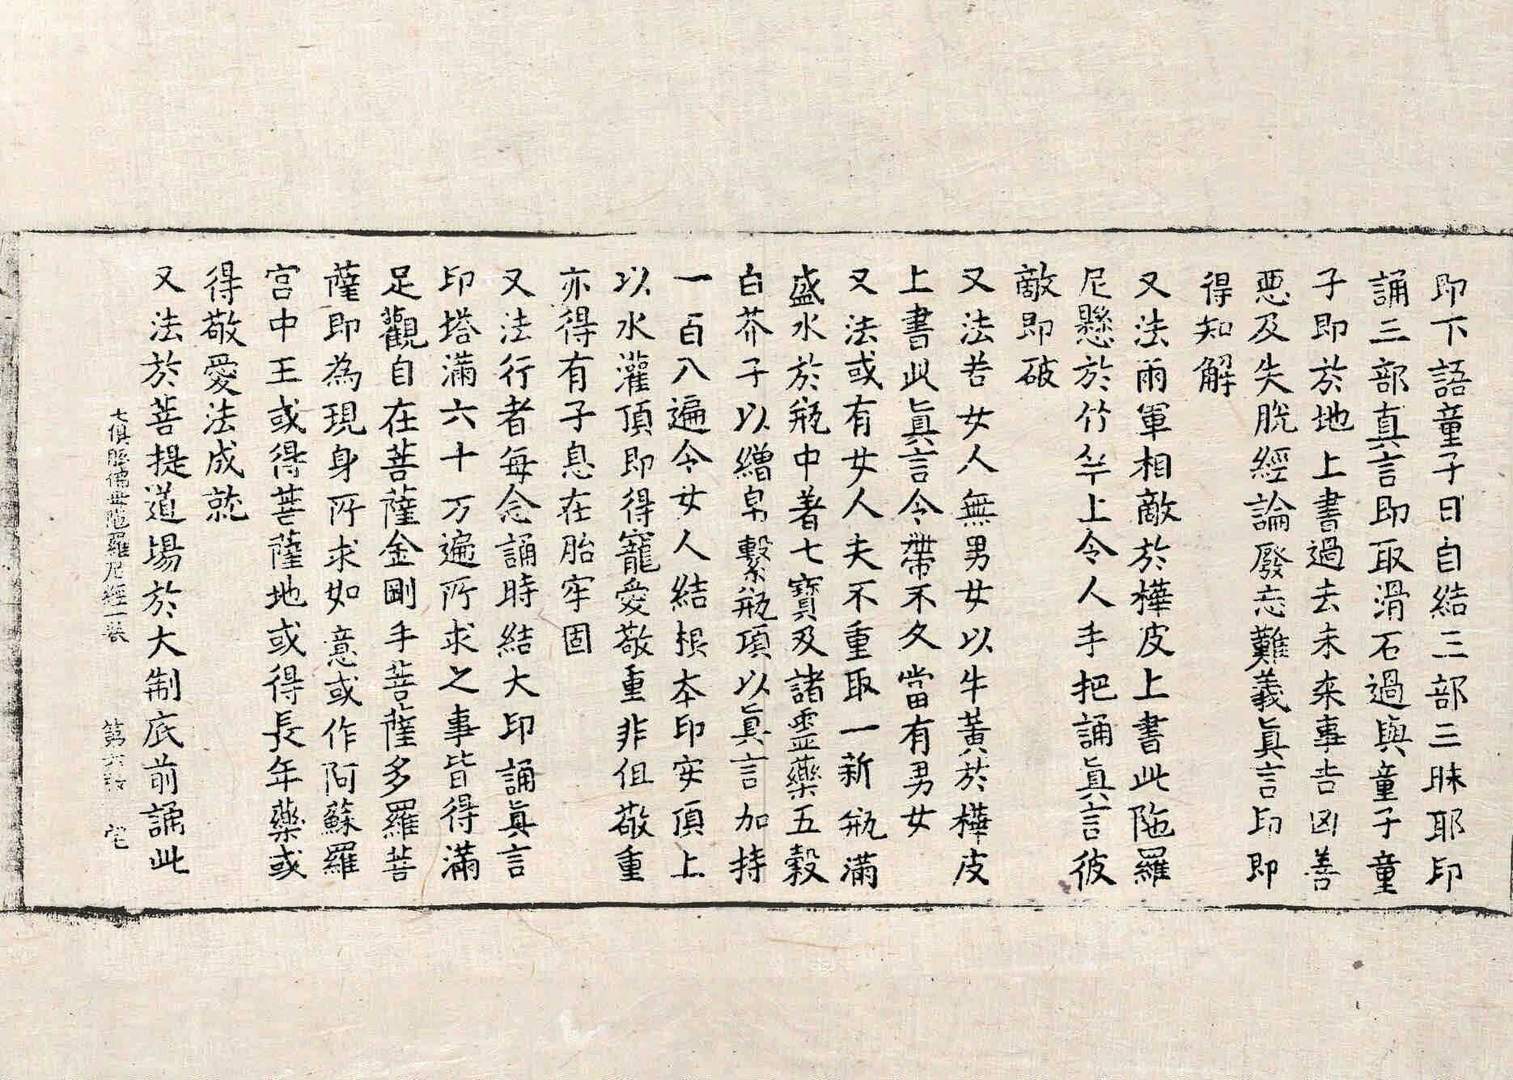 即下語童子曰自結三部三昧耶印
誦三部真言即取滑石過與童子童
子即於地上書過去未来事吉凶善
惡及失脫經論廢忘難義真言印即
得知解
又法兩軍相敵於樺皮上書此陁羅
尼懸於竹竿上令人手把誦真言彼
敵即破
又法若女人無男女以牛黃於樺皮
上書此真言令帶不久當有男女
又法或有女人夫不重取一新瓶滿
盛水於瓶中著七寶及諸靈藥五穀
白芥子以繒帛繫瓶項以真言加持
一百八遍令女人結根本印安頂上
以水灌頂即得寵愛敬重非但敬重
亦得有子息在胎牢固
又法行者每念誦時結大印誦真言
印塔滿六十万遍所求之事皆得滿
足觀自在菩薩金剛手菩薩多羅菩
薩即為現身所求如意或作阿蘇羅
宮中王或得菩薩地或得長年藥或
得敬愛法成就
七俱胝佛母陁羅尼經一卷 第六張 宅
又法於菩提道場於大制底前誦此